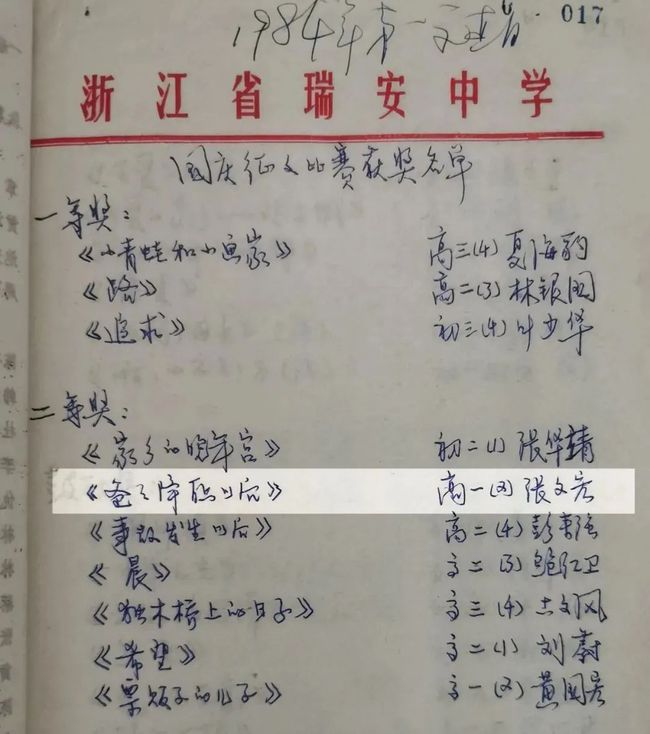 1984年第一 017
浙江省瑞安中学
国庆征文比赛获奖名单
一等奖：
《小青蛙和小画家》 高三(4) 夏海豹
《路》 高二(3) 林银国
《追求》 初三(4) 叶少华
二等奖：
《家乡的晚年宫》 初二(1) 张华靖
《爸爸降职以后》 高一(2) 张文宏
《事故发生以后》 高二(4) 彭
《晨》 高二(3) 鲍红卫
《独木桥上的日子》 高三(4) 文风
《希望》 高二(1) 刘蔚
《票贩子的儿子》 高一(2) 黄国